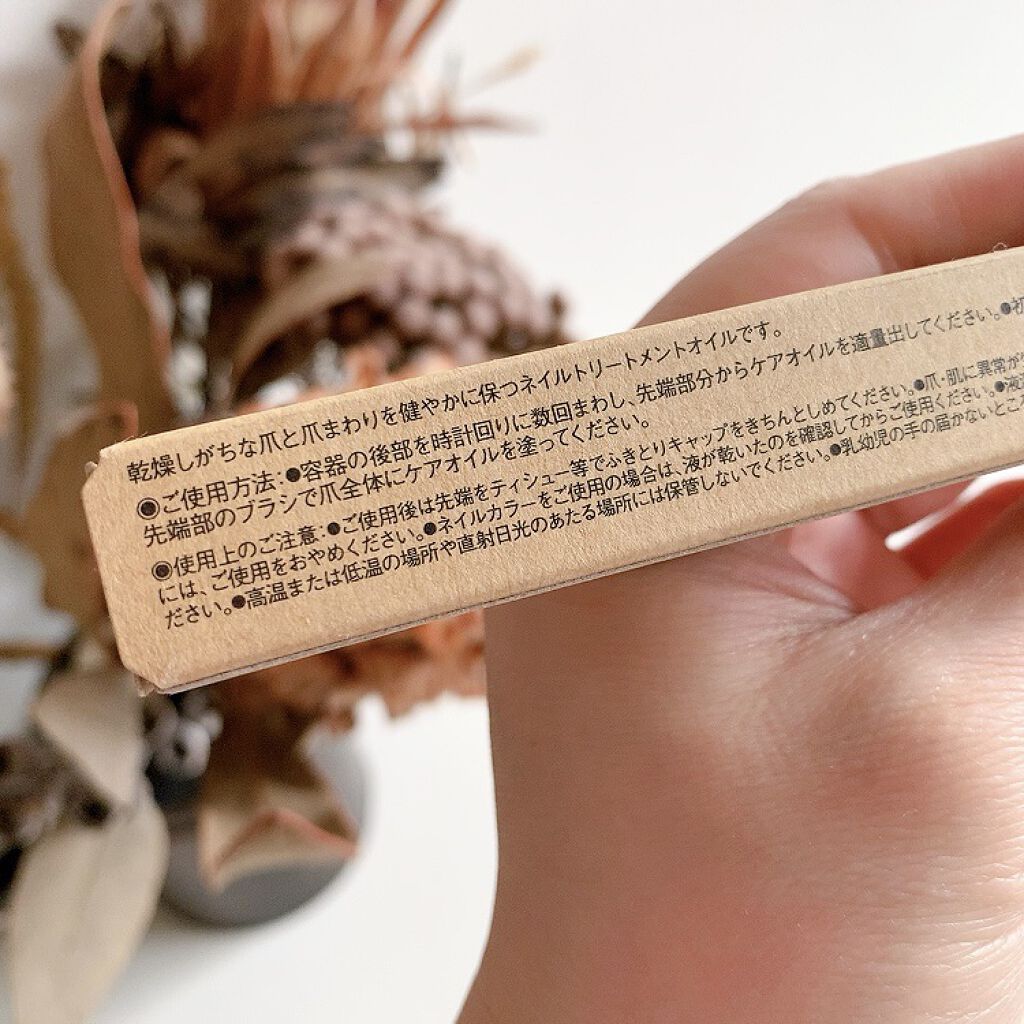 乾燥しがちな爪と爪まわりを健やかに保つネイルトリートメントオイルです。
◉ご使用方法：●容器の後部を時計回りに数回まわし、先端部分からケアオイルを適量出してください。●初
先端部のブラシで爪全体にケアオイルを塗ってください。
◉使用上のご注意：●ご使用後は先端をティシュー等でふきとりキャップをきちんとしめてください。●爪・肌に異常が
には、ご使用をおやめください。●ネイルカラーをご使用の場合は、液が乾いたのを確認してからご使用ください。●液
ださい。●高温または低温の場所や直射日光のあたる場所には保管しないでください。●乳幼児の手の届かないところ